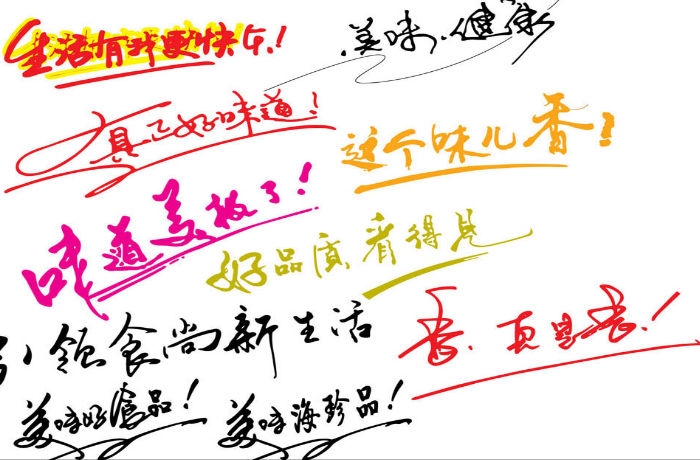 生活有我更快乐!
美味、健康
真正好味道!
这个味儿香!
味道美极了!
好品质看得见
引领食尚新生活
香,真是香!
美味好食品!
美味海珍品!